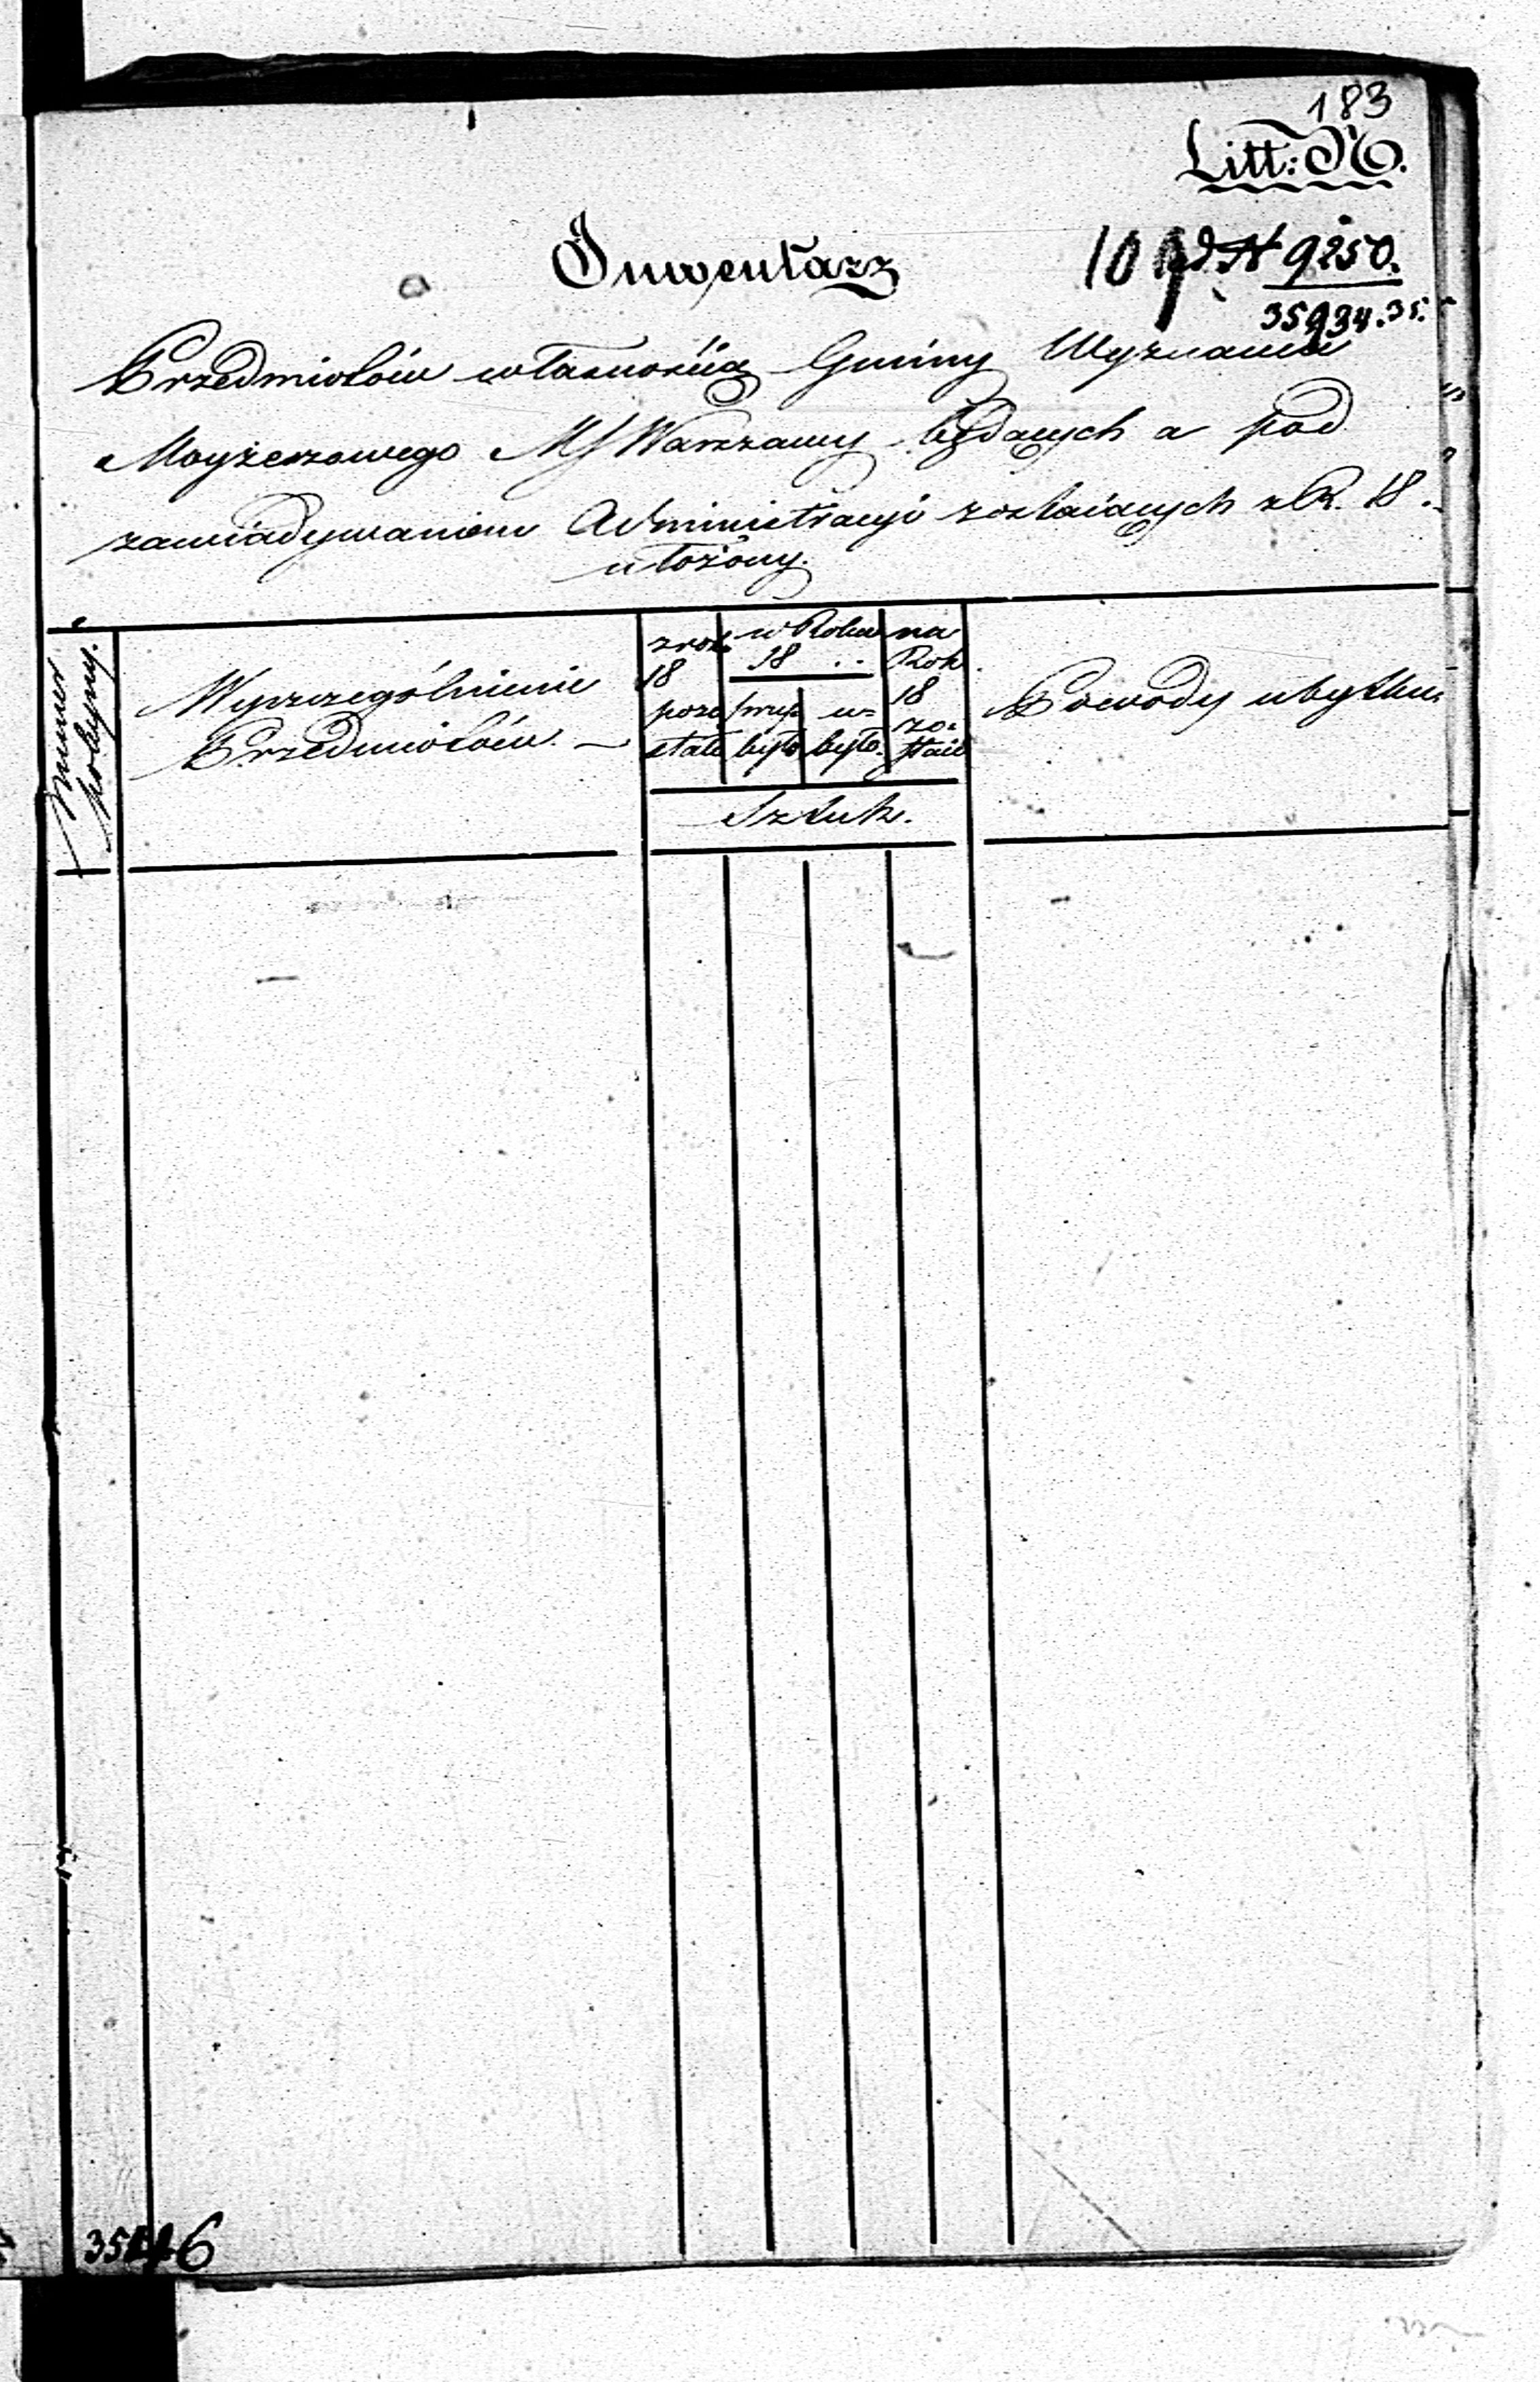 183
Litt: N.
Inwentarz
109 d N 9250.
35934.35.
Przedmiotów własnością Gminy Wyznania
Moyżeszowego MS Warszawy będących a pod
zawiadywaniem Administracyi zostaiących z R. 18 .
ułożony.
Numer
kolejny.
Wyszczególnienie
Przedmiotów.
z rok.
18
pozo
stało
w Roku
18 . .
przy
było
u=
było
na
Rok
18
zo=
staie
Powody ubytku
Sztuk.
6